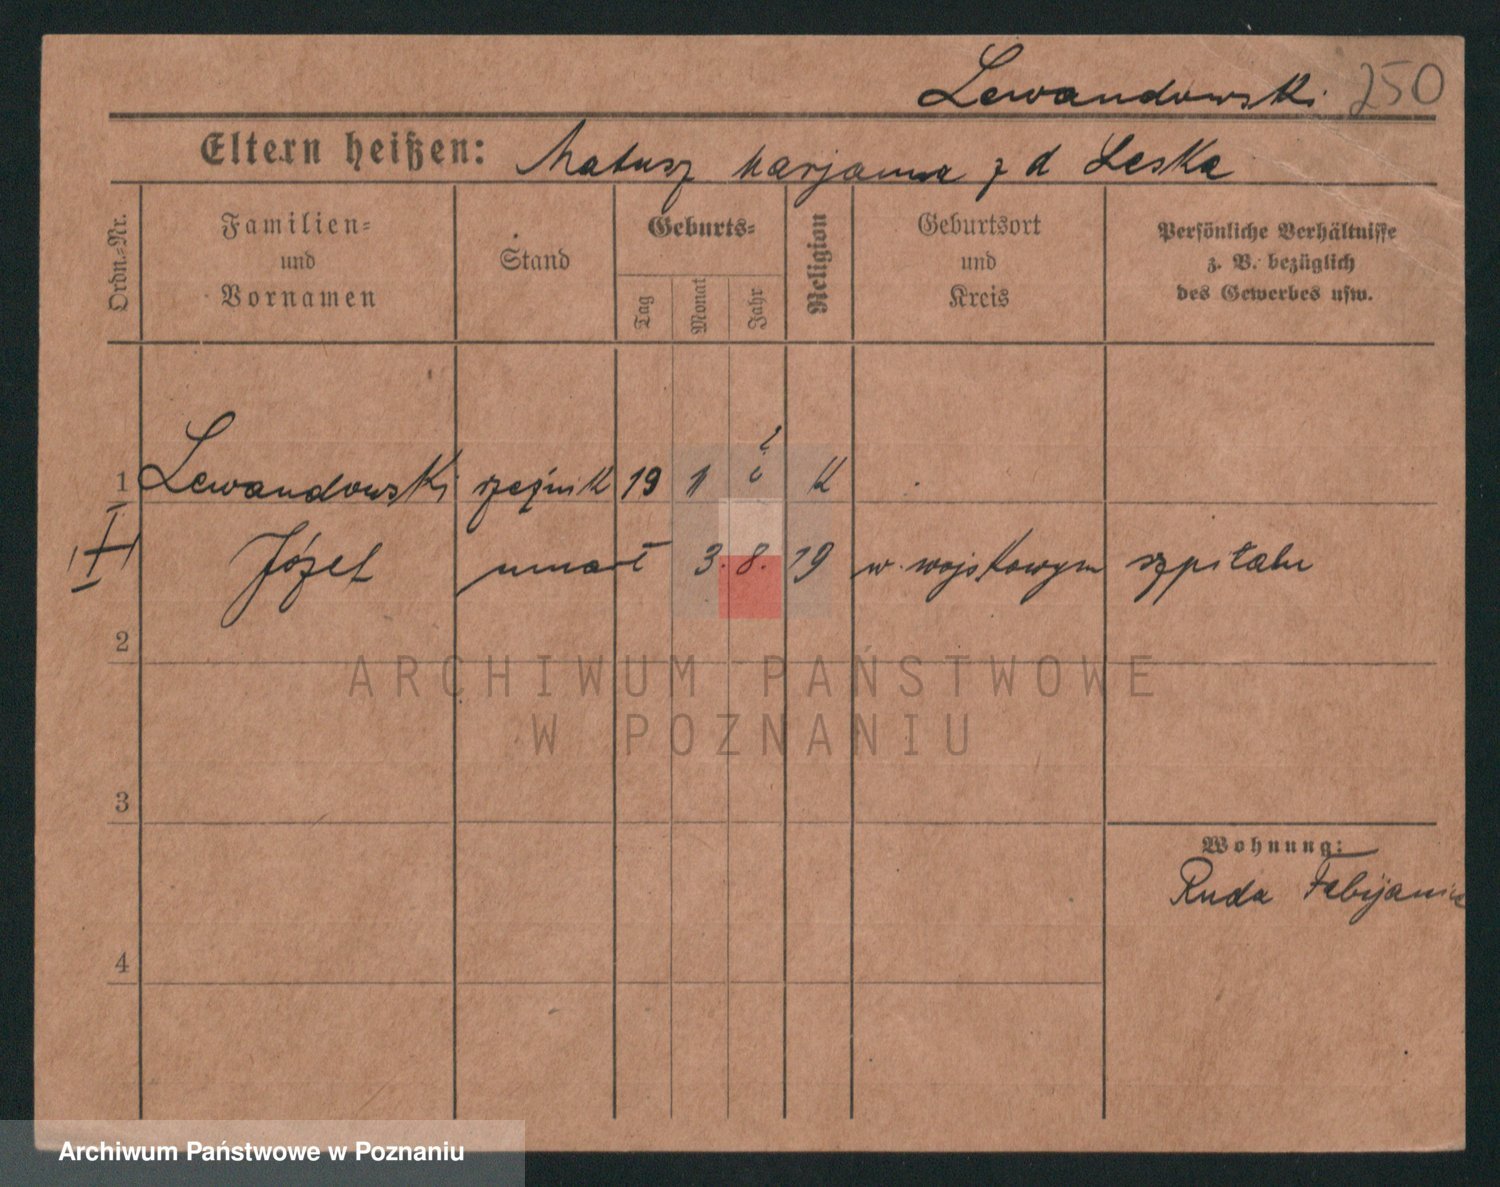 Lewandowski 250
Eltern heißen: Matusz Marjanna z d Leska
Ordn.-Nr.
Familien-
und
Vornamen
Stand
Geburts-
Tag
Monat
Jahr
Religion
Geburtsort
und
Kreis
Persönliche Verhältnisse
z. B. bezüglich
des Gewerbes usw.
1 Lewandowski rzeźnik 19 11 ? K
Józef umarł 3. 8. 19 w wojskowym szpitalu
2
3
4
Wohnung:
Ruda Fabijanic
ARCHIWUM PAŃSTWOWE
W POZNANIU
Archiwum Państwowe w Poznaniu